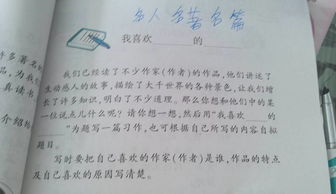 名人名著名篇
我喜欢 的
我们已经读了不少作家(作者)的作品,他们讲述了
生动感人的故事,描绘了大千世界的各种景色,让我们增
长了许多知识,明白了不少道理。那么你想和他们中的某
一位说点儿什么呢?请你想一想,然后用“我喜欢 的
”为题写一篇习作,也可根据自己所写的内容自拟
题目。
写时要把自己喜欢的作家(作者)是谁,作品的特点
及自己喜欢的原因写清楚。
许多著名
品,为我
真读书。
介绍给